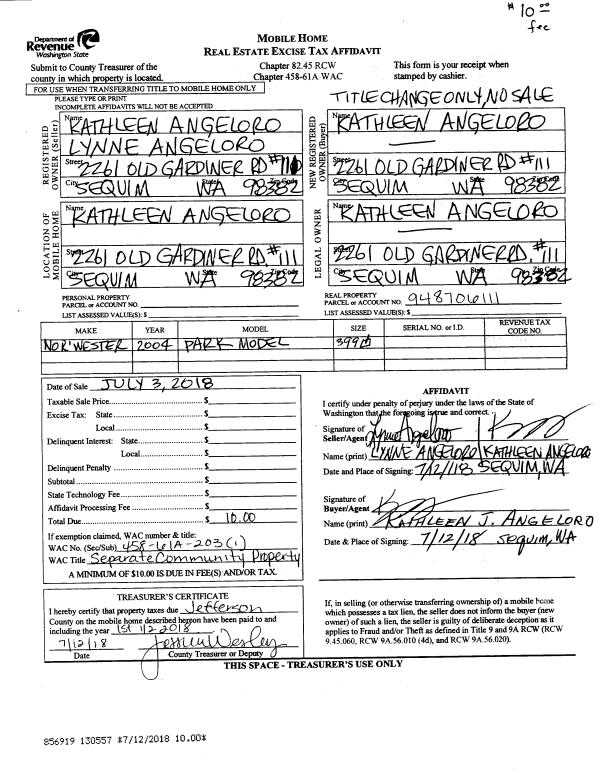 # 10 00
fee
Department of
Revenue
Washington State
MOBILE HOME
REAL ESTATE EXCISE TAX AFFIDAVIT
Submit to County Treasurer of the
county in which property is located.
Chapter 82.45 RCW
Chapter 458-61A-WAC
This form is your receipt when
stamped by cashier.
FOR USE WHEN TRANSFERRING TITLE TO MOBILE HOME ONLY
PLEASE TYPE OR PRINT
INCOMPLETE AFFIDAVITS WILL NOT BE ACCEPTED
TITLE CHANGE ONLY, NO SALE
REGISTERED
OWNER (Seller)
Name KATHLEEN ANGELORO
LYNNE ANGELORO
Street 2261 OLD GARDINER RD #111
City SEQUIM State WA Zip Code 98382
NEW REGISTERED
OWNER (Buyer)
Name KATHLEEN ANGELORO
Street 2261 OLD GARDINER RD #111
City SEQUIM State WA Zip Code 98382
LOCATION OF
MOBILE HOME
Name KATHLEEN ANGELORO
Street 2261 OLD GARDINER RD. #111
City SEQUIM State WA Zip Code 98382
LEGAL OWNER
Name KATHLEEN ANGELORO
Street 2261 OLD GARDINER RD. #111
City SEQUIM State WA Zip Code 98382
PERSONAL PROPERTY
PARCEL or ACCOUNT NO.
LIST ASSESSED VALUE(S): $
REAL PROPERTY
PARCEL or ACCOUNT NO. 948706111
LIST ASSESSED VALUE(S): $
MAKE YEAR MODEL SIZE SERIAL NO. or I.D. REVENUE TAX CODE NO.
NOR'WESTER 2004 PARK MODEL 399
Date of Sale JULY 3, 2018
Taxable Sale Price $
Excise Tax: State $
Local $
Delinquent Interest: State $
Local $
Delinquent Penalty $
Subtotal $
State Technology Fee $
Affidavit Processing Fee $
Total Due $ 10.00
If exemption claimed, WAC number & title:
WAC No. (Sec/Sub) 458-61A-203 (1)
WAC Title Separate Community Property
A MINIMUM OF $10.00 IS DUE IN FEE(S) AND/OR TAX.
AFFIDAVIT
I certify under penalty of perjury under the laws of the State of
Washington that the foregoing is true and correct.
Signature of
Seller/Agent Lynne Angeloro
Name (print) LYNNE ANGELORO / KATHLEEN ANGELORO
Date and Place of Signing: 7/12/18 SEQUIM, WA
Signature of
Buyer/Agent
Name (print) KATHLEEN J. ANGELORO
Date & Place of Signing: 7/12/18 SEQUIM, WA
TREASURER'S CERTIFICATE
I hereby certify that property taxes due Jefferson
County on the mobile home described hereon have been paid to and
including the year 1st 1/2 2018
7/12/18 Jessica Wesley
Date County Treasurer or Deputy
If, in selling (or otherwise transferring ownership of) a mobile home
which possesses a tax lien, the seller does not inform the buyer (new
owner) of such a lien, the seller is guilty of deliberate deception as it
applies to Fraud and/or Theft as defined in Title 9 and 9A RCW (RCW
9.45.060, RCW 9A.56.010 (4d), and RCW 9A.56.020).
THIS SPACE - TREASURER'S USE ONLY
856919 130557 *7/12/2018 10.00*